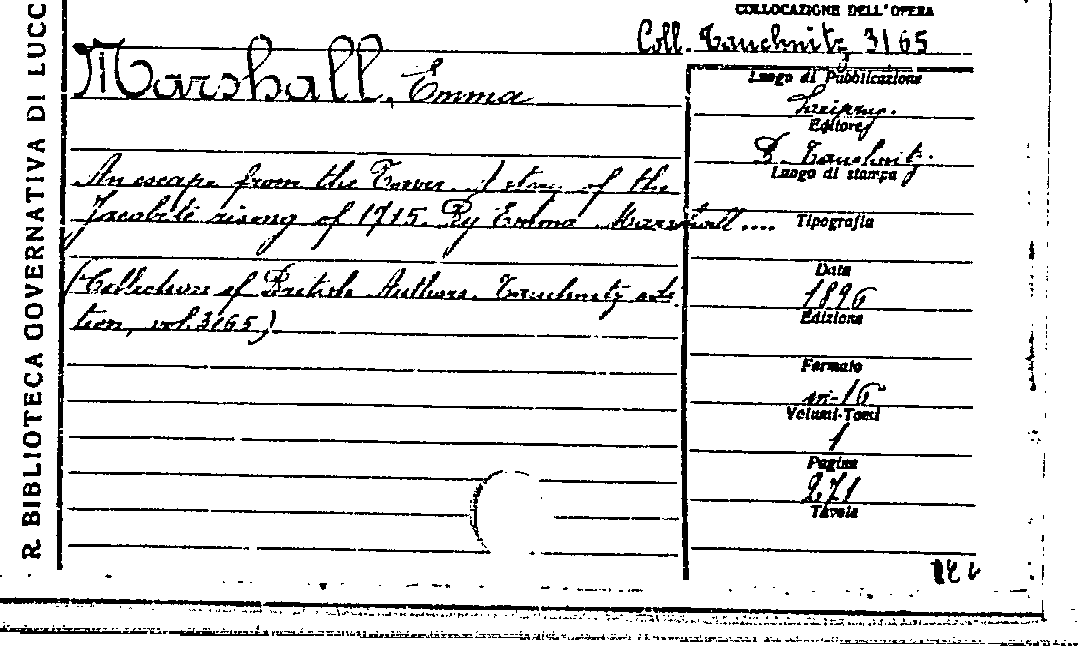 R BIBLIOTECA GOVERNATIVA DI LUCC
COLLOCAZIONE DELL'OPERA
Coll. Tauchnitz 3165
Marshall, Emma
An escape from the Tower. A story of the
Jacobite rising of 1715. By Emma Marshall....
(Collection of British Authors. Tauchnitz edi-
tion, vol. 3165)
Luogo di Pubblicazione
Leipzig.
Editore
B. Tauchnitz.
Luogo di stampa
Tipografia
Data
1896
Edizione
Formato
in-16
Volumi-Tomi
1
Pagine
271
Tavole